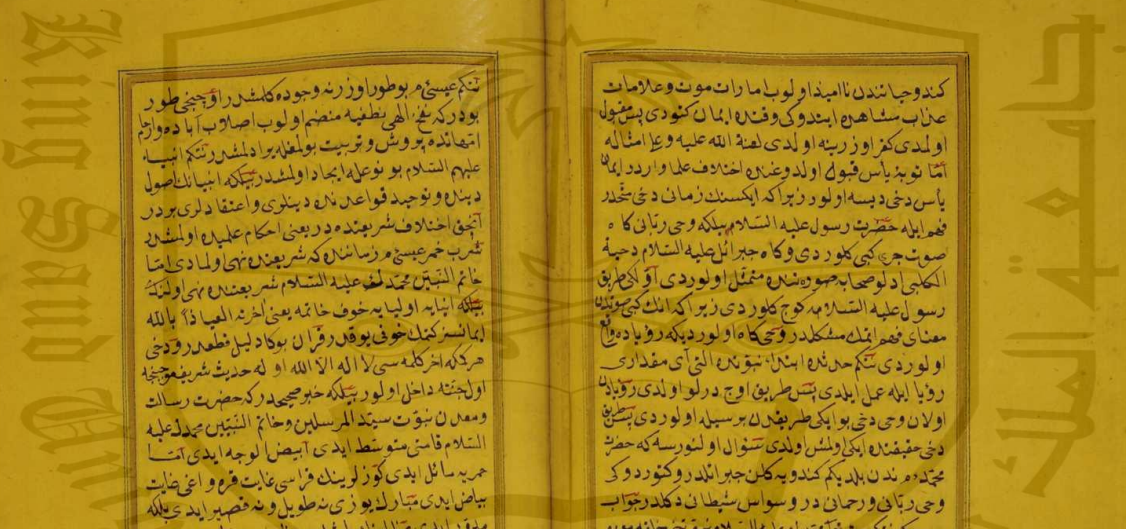 كندو جانندن ناامید اولوب امارات موت و علامات
عذاب مشاهده ایتدوكی وقتده ایمان كتوردی مقبول
اولمدی كفر اوزرینه اولدی لعنة الله علیه وعلی امثاله
امّا توبۀ یأس قبول اولدوغنده اختلاف علما واردر ایمان
یأس دخی دیسه اولور زیراكه ایكسنك زمانی دخی متّحددر
فهم ایله حضرت رسول علیه السّلام بیلكه وحی ربّانی كاه
صوت جرس كبی كلوردی وكاه جبرائل علیه السّلام دحیة
الكلبی دلو صحابه صورتنده متمثّل اولوردی اوّلكی طریق
رسول علیه السّلامه كوج كلوردی زیراكه انك كبی صوتدن
معنای فهم اتمك مشكلدر وحی كاه اولوردیكه رؤیاده واقع
اولوردی نتكم حدیثده ابتداء نبوّتده التی آی مقداری
رؤیا ایله عمل ایلدی پس طریق اوج درلو اولدی رؤیادن
اولان وحی دخی بو ایكی طریقدن برسیله اولوردی پس طریق
دخی حقیقتده ایكی اولمش اولدی سؤال اولنورسه كه حضرت
محمّد م ندن بلدیكم كندویه كلن جبرائلدر وكتوردوكی
وحی ربّانی و رحمانی در وسواس شیطانی دكلدر جواب
نتكم عیسی م بو طور اوزرنه وجوده كلمشدر اوچنجی طور
بودركه نفخ الهی نطفیه منضم اولوب اصلاب آباده وارحام
امّهاتده پرورش و تربیت بولمغله یرادلمشدر نتكم انبیاء
علیهم السّلام بو نوعله ایجاد اولمشدر بیلكه انبیانك اصول
دینده و توحید قواعدنده دینلری واعتقادلری بردر
آنجق اختلاف شریعتده در یعنی احكام علمیده اولمشدر
شرب خمر عیسی م زماننده كه شریعتنده نهی اولمادی امّا
خاتم النّبیّین محمّد مصطفی علیه السّلام شریعتنده نهی اولندی
بیلكه انبیایه اولیایه خوف خاتمه یعنی آخرته العیاذاً بالله
ایمانسز كتمك خوفی یوقدر قرآن بوكا دلیل قطعیدر ودخی
هركه كه آخر كلمه سی لا اله الّا الله اوله حدیث شریف موجبنجه
اول جنّته داخل اولور بیلكه خبر صحیحدركه حضرت رسالت
ومعدن نبوّت سیّد المرسلین وخاتم النّبیّین محمّد علیه
السّلام قامتی متوسّط ایدی ابیض الوجه ایدی امّا
حمریه مائل ایدی كوزلرینك قراسی غایت قره و اغی غایت
بیاض ایدی مبارك بویی نه طویل و نه قصیر ایدی بلكه